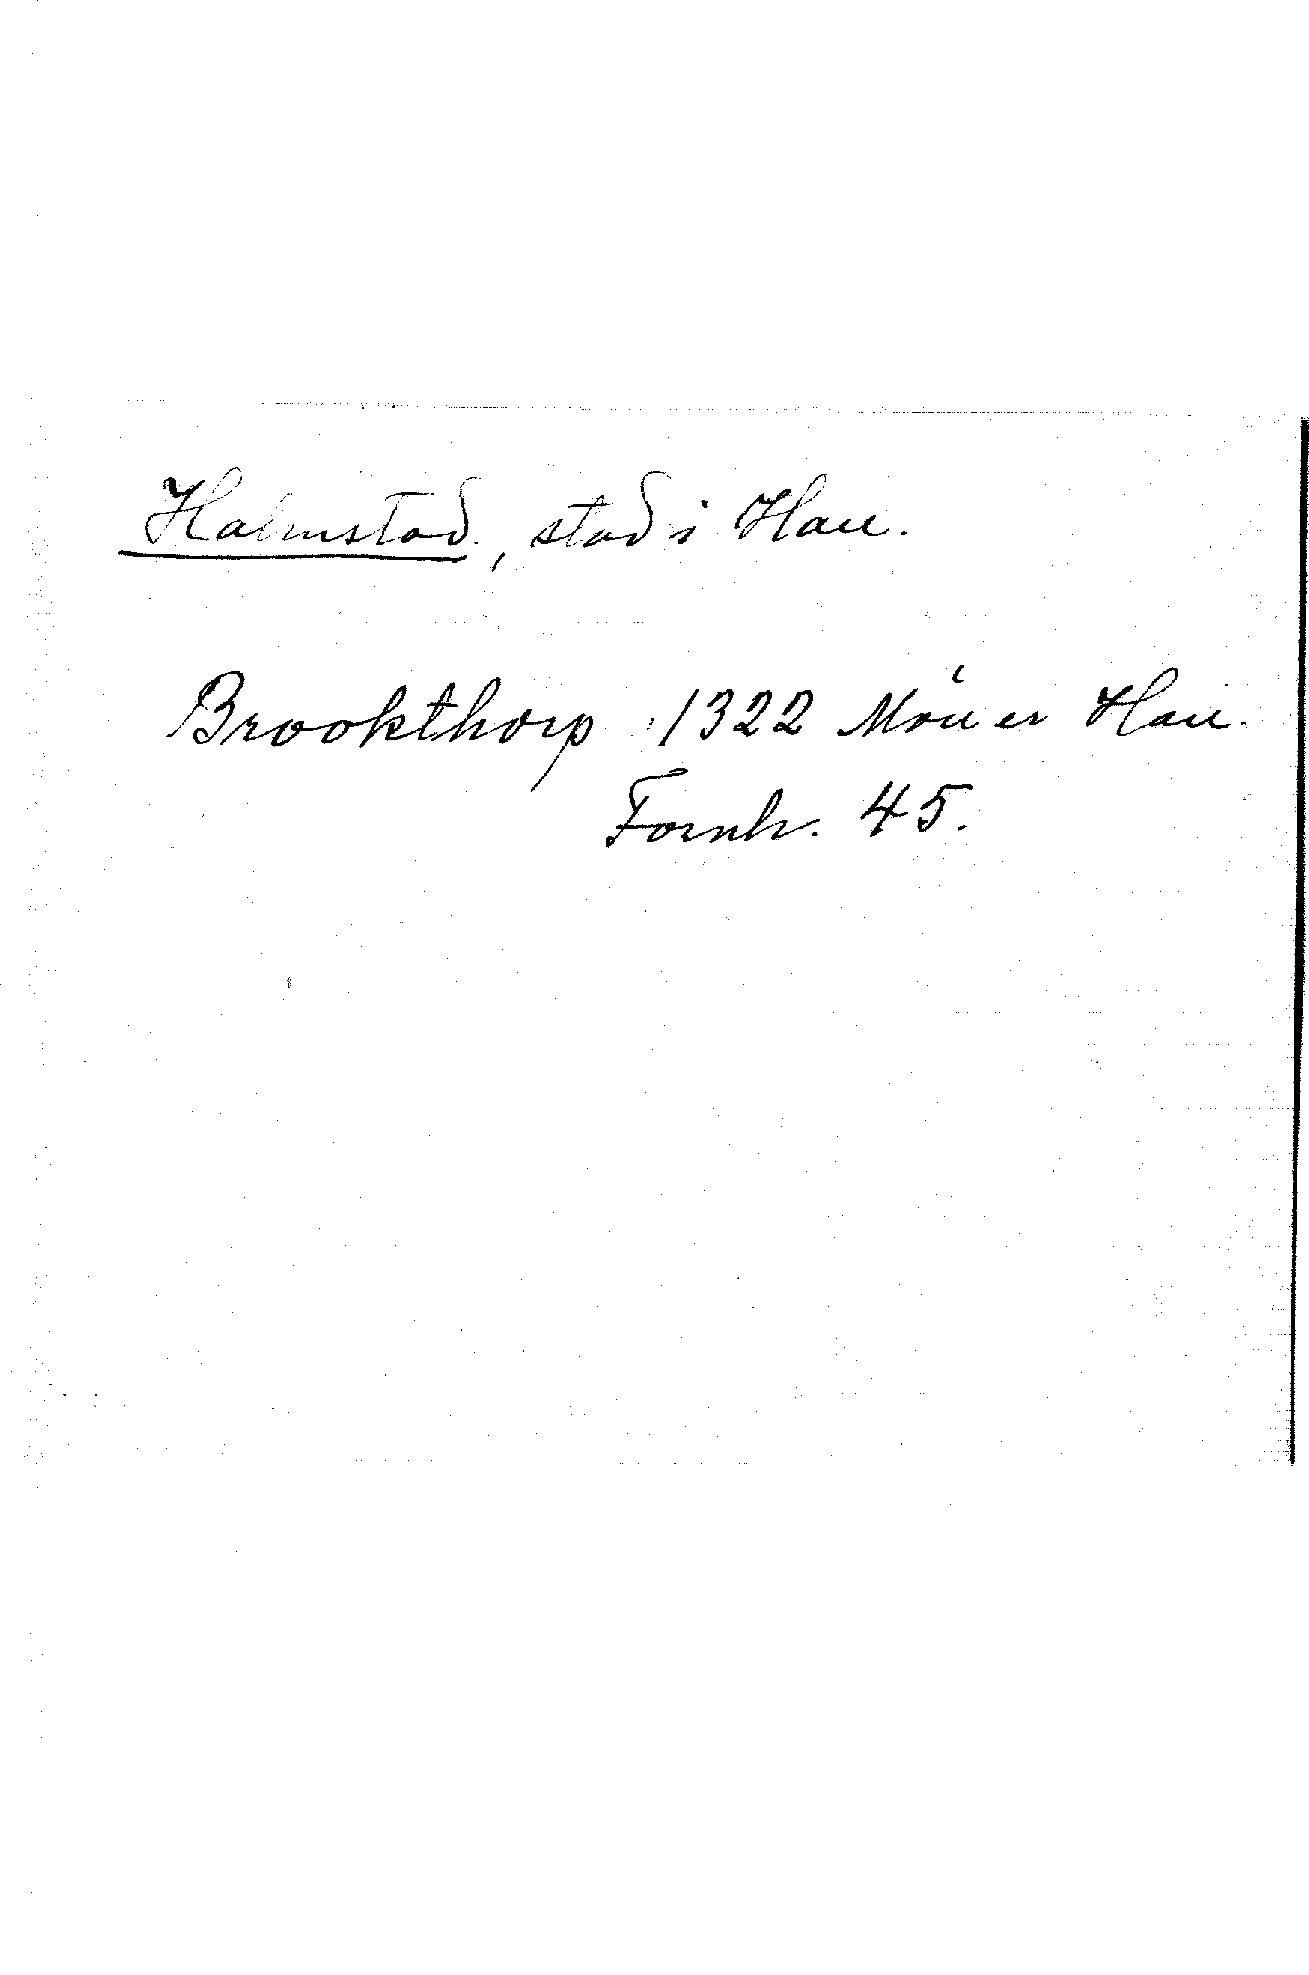 Halmstad, stad i Hall.
Brookthorp 1322 Möller Hall.
Fornh. 45.